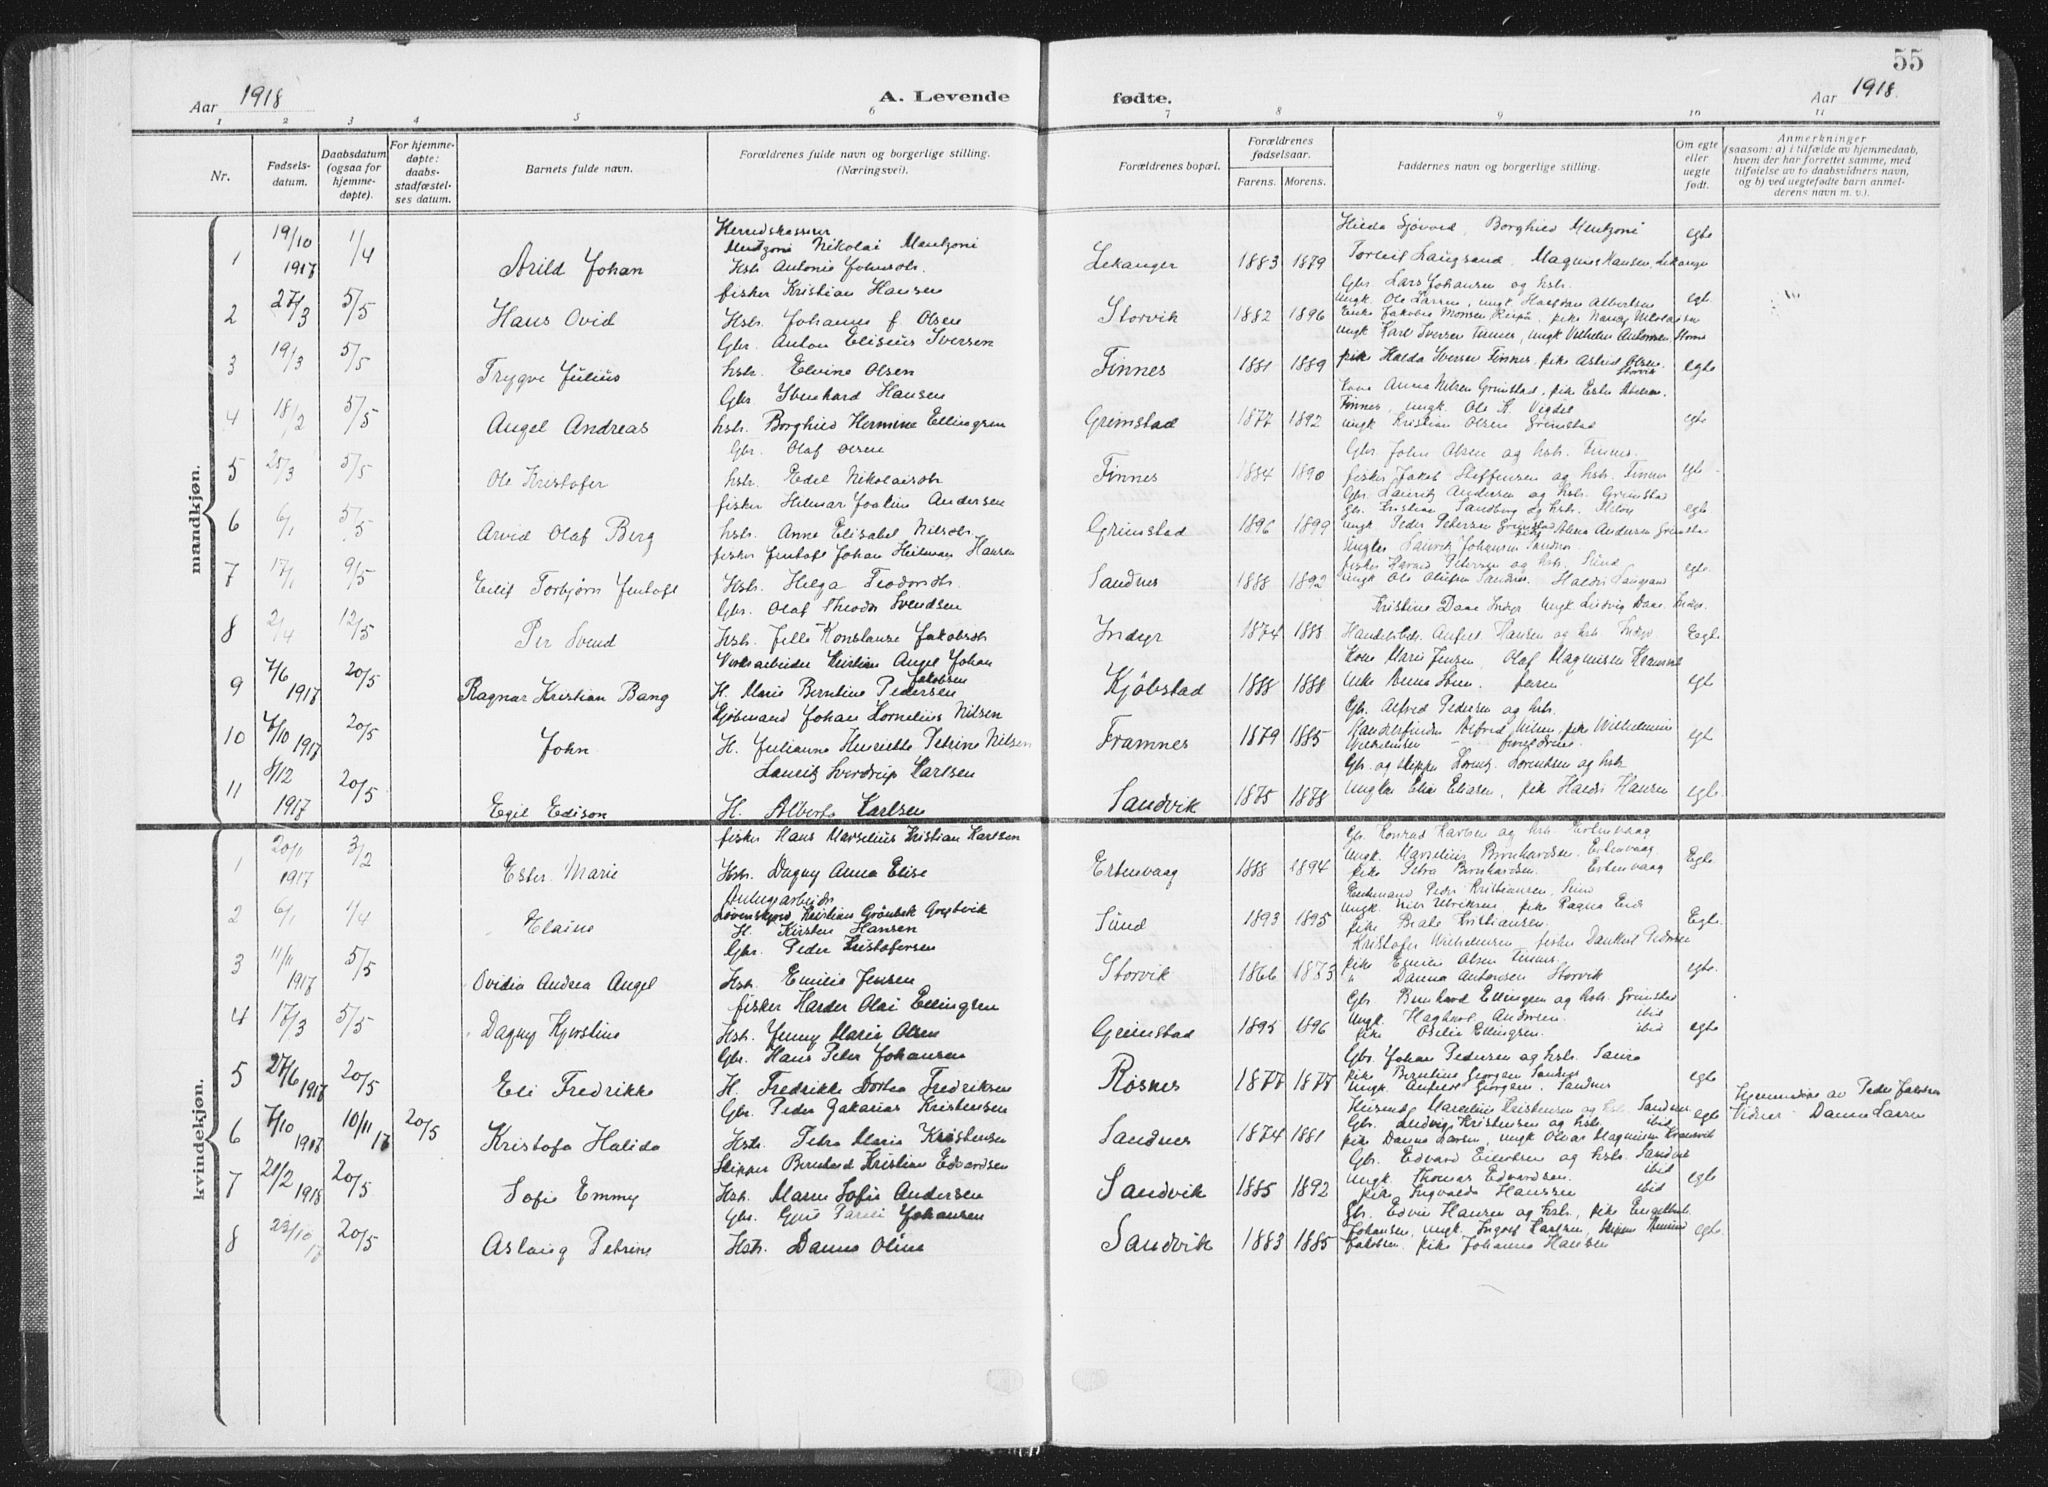 55
Aar 1918 A. Levende fødte. Aar 1918.
1 2 3 4 5 6 7 8 9 10 11
Nr.
Fødselsdatum.
Daabsdatum (ogsaa for hjemmedøpte).
For hjemmedøpte: daabsstadfæstelses datum.
Barnets fulde navn.
Forældrenes fulde navn og borgerlige stilling. (Næringsvei).
Forældrenes bopæl.
Forældrenes fødselsaar.
Farens. Morens.
Faddernes navn og borgerlige stilling.
Om egte eller uegte født.
Anmerkninger
(saasom: a) i tilfælde av hjemmedaab, hvem der har forrettet samme, med tilføielse av to daabsvidners navn, og b) ved uegtefødte barn anmelderens navn m. v.).
mandkjøn.
1 19/10 1917 1/4 Arild Johan
Herredskasserer
Mentzoni Nikolai Mentzoni
Hstr. Antonie
Lekanger 1883 1879
Hilda Borghild Mentzoni
Magnus Hansen egte
2 27/3 5/5 Hans Ovid
fisker Kristian Hansen
Hstr. Johanna f. Olsen
Storvik 1882 1896
Gbr. Lars Johansen og hstr.
ungk. Ole Larsen, ungk. Halfdan Albertsen egt.
3 19/3 5/5 Trygve Julius
Gbr. Anton Eliseus Iversen
hstr. Elvine Olsen
Finnes 1881 1889
ungk. Karl Iversen Finnes, ungk. Vilhelm Antonsen
pike Halda Iversen Finnes, pike Astrid Olsen Storvik egte
4 18/2 5/5 Angel Andreas
Gbr. Svenhard Hansen
hstr. Borghild Hermine Ellingsen
Grimstad 1877 1892
Kone Anna Nilsen Grimstad, pike Ester
Finnes, ungk. Ole K.
ungk. Kristian Olsen Grimstad egte
5 25/3 5/5 Ole Kristofer
Gbr. Olaf Olsen
hstr. Edel Nikolaisdtr.
Finnes 1884 1890
Gbr. John Olsen og hstr. Finnes.
fisker Jakob Steffensen og hstr. Finnes egte
6 6/1 5/5 Arvid Olaf Berg
fisker Hilmar Joakim Andersen
hstr. Anne Elisabet Nilsdtr.
Grimstad 1896 1899
Gbr. Lauritz Andersen og hstr. Grimstad
Gbr. Kristian Sandberg og hstr.
ungk. Peder Petersen Grimstad egte
7 17/1 9/5 Eilif Torbjørn Jentoft
fisker Jentoft Johan Heitman Hansen
Hstr. Helga Teodorsdtr.
Sandnes 1888 1892
Ungkar Lauritz Johansen Sandnes
fisker Harald Petersen og hstr. Sund
ungk. Ole Olufsen Sandnes egte
8 2/4 12/5 Per Svend
Gbr. Olaf Theodor Svendsen
Hstr. Konstanse Jakobsdtr.
Indyr 1874 1888
Kristine Dane Indyr Ungk. Ludvig Dane, Indyr.
Hansen og hstr. Indyr Egte
9 7/6 1917 20/5 Ragnar Kristian Bang
Verksarbeider Kristian Angel Johan Jakobsen
H. Marie Berntine Pedersen
Kjøbstad 1888 1888
Kone Marie Jensen, Olaf Magnusen
faren egte
10 7/10 1917 20/5 John
Kjøbmand Johan Kornelius Nilsen
H. Julianne Henriette Petrine Nilsen
Framnes 1879 1885
Gbr. Alfred Pedersen og hstr.
Nilsen pike Wilhelmine
Wilhelmsen forældrene egte
11 8/12 1917 20/5 Egil Edison
Lauritz Sverdrup Karlsen
H. Alberta Karlsen
Sandvik 1875 1878
Gbr. og skipper Lorentz Lorentsen og hstr
ungkar Elias Eliasen, pike Haldis Hansen egte.
kvindekjøn.
1 20/11 1917 3/2 Ester Marie
fisker Hans Marselius Kristian Karlsen
Hstr. Dagny Anna Elise
Ertenvaag 1888 1894
Gbr. Konrad Karlsen og hstr. Ertenvaag
ungk. Marselius Bernhardsen. Ertenvaag.
pike Petra Bernhardsen. Ertenvaag Egte
2 6/1 1/4 Elaine
Løvenskjold Kristian Grønbek
H. Kirsten Hansen
Sund 1893 1895
Peder Kristiansen, Sund
ungk. Nils Ulriksen, pike Ragna
pike Beate Kristiansen, Egte.
3 11/11 1917 5/5 Ovidia Andrea Angel
Gbr. Peder Kristofersen
Hstr. Emilie Jensen
Storvik 1866 1873
Kristofer Wilhelmsen, fisker Dankert Pedersen
pike Emilie Olsen Finnes.
" Danna Antonsen Storvik egte.
4 17/3 5/5 Dagny Kjerstine
fisker Harder Olai Ellingsen
Hstr. Jenny Marie Olsen
Grimstad 1895 1896
Gbr. Bernhard Ellingsen og hstr. Grimstad
ungk. Hagbart Andersen. ibid
pike Oselie Ellingsen. ibid egte
5 27/6 1917 20/5 Eli Fredrikke
Gbr. Hans Peter Johansen
H. Fredrikke Dortea Fredriksen
Rosnes 1877 1877
Gbr. Johan Pedersen og hstr.
pike Berntine Georgsen Sandnes
ungk. Georgsen. Sandnes egte
6 7/10 1917 10/11 17 20/5 Kristofa Halida
Gbr. Peder Zakarias Kristensen
Hstr. Petra Maria Kristensen
Sandnes 1874 1881
Marselius Kristensen og hstr. Sandnes
Gbr. Ludvig Kristensen og hstr. ibid
pike Danna Larsen, ungk. Olvar Magnusen egte
Hjemmedøpt av Peder Jakobsen
Vidner Danna Larsen
7 21/2 1918 20/5 Sofie Emmy
Skipper Bernhard Kristian Edvardsen
Hstr. Maren Sofie Andersen
Sandvik 1885 1892
Gbr. Edvard Eilertsen og hstr. Sandvik
ungk. Thomas Edvardsen. ibid
pike Ingvalda Hanssen ibid egte
8 23/10 17 20/5 Aslaug Petrine
Gbr. Johansen
Hstr. Danna Oline
Sandvik 1883 1885
Gbr. Edvin Hansen og hstr., pike
Johansen, ungk. Ingolf Karlsen,
Jakobsen. pike Johanna Hansen egte.